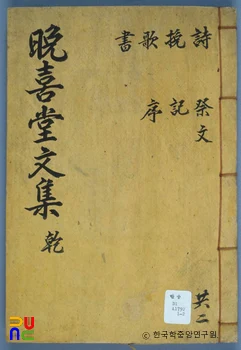 詩 祭文
挽 記
歌 序
書
晩喜堂文集 乾
共二
PUNE
ⓒ 한국학중앙연구원